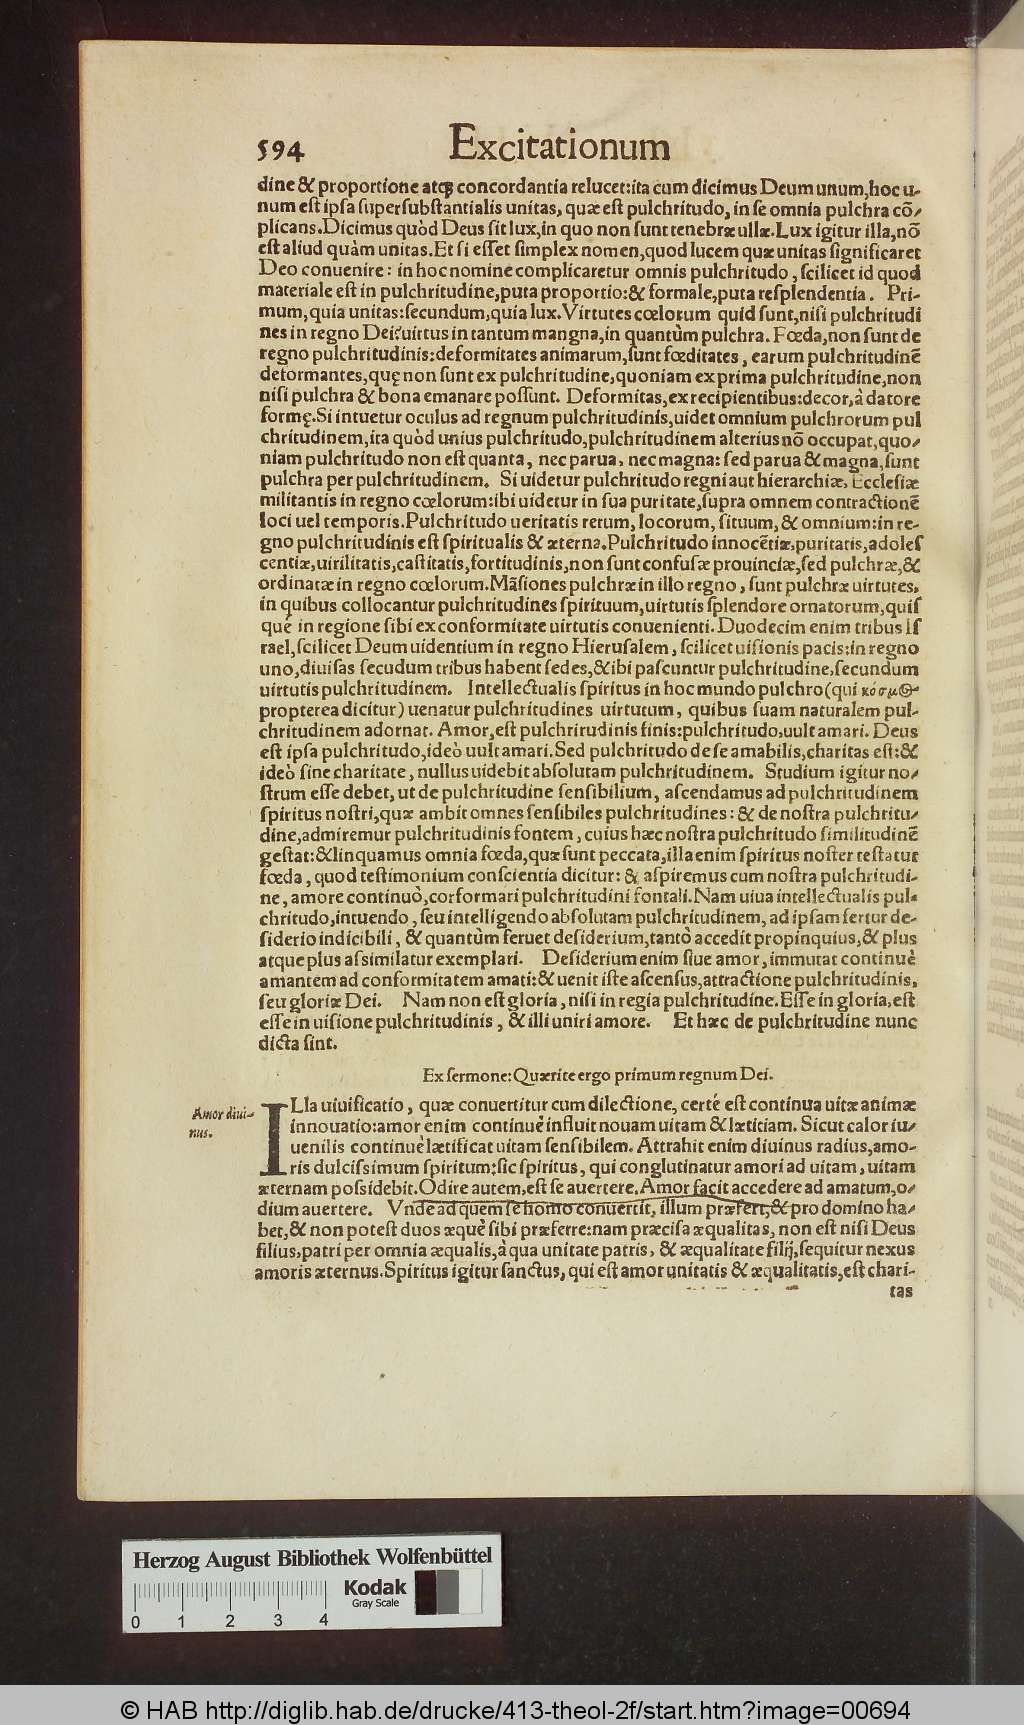 594 Excitationum
dine & proportione atqꝫ concordantia relucet:ita cum dicimus Deum unum,hoc u-
num eſt ipſa ſuperſubſtantialis unitas, quæ eſt pulchritudo, in ſe omnia pulchra cõ-
plicans.Dicimus quòd Deus ſit lux,in quo non ſunt tenebræ ullæ.Lux igitur illa,nõ
eſt aliud quàm unitas.Et ſi eſſet ſimplex nomen,quod lucem quæ unitas ſignificaret
Deo conuenire: in hoc nomine complicaretur omnis pulchritudo, ſcilicet id quod
materiale eſt in pulchritudine,puta proportio:& formale,puta reſplendentia. Pri-
mum,quia unitas:ſecundum,quia lux.Virtutes cœlorum quid ſunt,niſi pulchritudi
nes in regno Dei?uirtus in tantum mangna,in quantùm pulchra. Fœda,non ſunt de
regno pulchritudinis:deformitates animarum,ſunt fœditates, earum pulchritudinẽ
deformantes,quę non ſunt ex pulchritudine,quoniam ex prima pulchritudine,non
niſi pulchra & bona emanare poſſunt. Deformitas,ex recipientibus:decor,à datore
formę.Si intuetur oculus ad regnum pulchritudinis,uidet omnium pulchrorum pul
chritudinem,ita quòd unius pulchritudo,pulchritudinem alterius nõ occupat,quo-
niam pulchritudo non eſt quanta, nec parua, nec magna: ſed parua & magna,ſunt
pulchra per pulchritudinem. Si uidetur pulchritudo regni aut hierarchiæ, Eccleſiæ
militantis in regno cœlorum:ibi uidetur in ſua puritate,ſupra omnem contractionẽ
loci uel temporis.Pulchritudo ueritatis rerum, locorum, ſituum, & omnium:in re-
gno pulchritudinis eſt ſpiritualis & æterna.Pulchritudo innocẽtiæ,puritatis,adoleſ
centiæ,uirilitatis,caſtitatis,fortitudinis,non ſunt confuſæ prouinciæ,ſed pulchræ,&
ordinatæ in regno cœlorum.Mãſiones pulchræ in illo regno, ſunt pulchræ uirtutes,
in quibus collocantur pulchritudines ſpirituum,uirtutis ſplendore ornatorum,quiſ
que in regione ſibi ex conformitate uirtutis conuenienti.Duodecim enim tribus Iſ
rael,ſcilicet Deum uidentium in regno Hieruſalem, ſcilicet uiſionis pacis:in regno
uno,diuiſas ſecudum tribus habent ſedes,& ibi paſcuntur pulchritudine,ſecundum
uirtutis pulchritudinem. Intellectualis ſpiritus in hoc mundo pulchro(qui κόσμος
propterea dicitur) uenatur pulchritudines uirtutum, quibus ſuam naturalem pul-
chritudinem adornat. Amor,eſt pulchritudinis finis:pulchritudo,uult amari. Deus
eſt ipſa pulchritudo,ideò uult amari.Sed pulchritudo de ſe amabilis,charitas eſt:&
ideò ſine charitate, nullus uidebit abſolutam pulchritudinem. Studium igitur no-
ſtrum eſſe debet, ut de pulchritudine ſenſibilium, aſcendamus ad pulchritudinem
ſpiritus noſtri,quæ ambit omnes ſenſibiles pulchritudines: & de noſtra pulchritu-
dine,admiremur pulchritudinis fontem, cuius hæc noſtra pulchritudo ſimilitudinẽ
geſtat:& linquamus omnia fœda,quæ ſunt peccata,illa enim ſpiritus noſter teſtatur
fœda, quod teſtimonium conſcientia dicitur: & aſpiremus cum noſtra pulchritudi-
ne, amore continuò,corformari pulchritudini fontali.Nam uiua intellectualis pul-
chritudo,intuendo, ſeu intelligendo abſolutam pulchritudinem, ad ipſam fertur de-
ſiderio indicibili, & quantùm feruet deſiderium,tantò accedit propinquius,& plus
atque plus aſsimilatur exemplari. Deſiderium enim ſiue amor, immutat continuè
amantem ad conformitatem amati:& uenit iſte aſcenſus,attractione pulchritudinis,
ſeu gloriæ Dei. Nam non eſt gloria, niſi in regia pulchritudine.Eſſe in gloria,eſt
eſſe in uiſione pulchritudinis, & illi uniri amore. Et hæc de pulchritudine nunc
dicta ſint.
Ex ſermone: Quærite ergo primum regnum Dei.
Amor diui-
nus.
ILla uiuificatio, quæ conuertitur cum dilectione, certè eſt continua uitæ animæ
innouatio:amor enim continuè influit nouam uitam & lætitiam. Sicut calor iu-
uenilis continuè lætificat uitam ſenſibilem. Attrahit enim diuinus radius,amo-
ris dulciſsimum ſpiritum:ſic ſpiritus, qui conglutinatur amori ad uitam, uitam
æternam poſsidebit.Odire autem,eſt ſe auertere.Amor facit accedere ad amatum,o-
dium auertere. Vnde ad quem ſe homo conuertit, illum præfert,& pro domino ha-
bet,& non poteſt duos æquè ſibi præferre:nam præciſa æqualitas, non eſt niſi Deus
filius,patri per omnia æqualis,à qua unitate patris, & æqualitate filij,ſequitur nexus
amoris æternus.Spiritus igitur ſanctus, qui eſt amor unitatis & æqualitatis,eſt chari-
tas
Herzog August Bibliothek Wolfenbüttel
Kodak
Gray Scale
0 1 2 3 4
© HAB http://diglib.hab.de/drucke/413-theol-2f/start.htm?image=00694